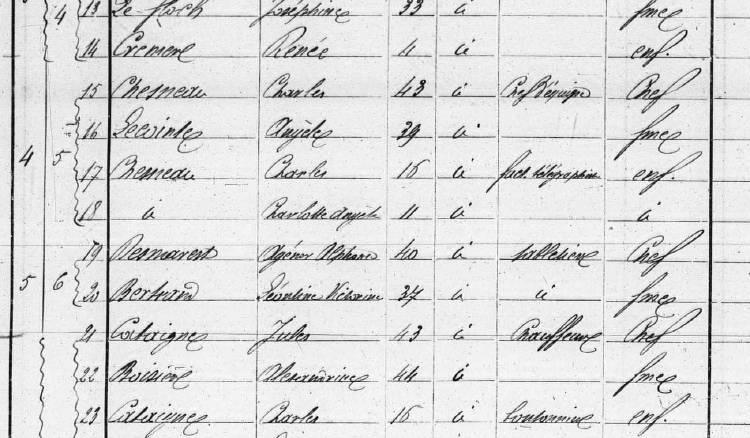 4 13 Le floch Joséphine 33 id fme
14 Cremere Renée 4 id enf.
15 Chesneau Charles 43 id Chef d'équipe Chef
16 Lecointe Angèle 39 id fme
4 5 17 Chesneau Charles 16 id fact. télégraphiste enf.
18 id Charlotte Angèle 11 id id
19 Desmarest Agénor Alphonse 40 id tabletier Chef
5 6 20 Bertrand Léontine Victorine 37 id id fme
21 Cataigne Jules 43 id Chauffeur Chef
22 Alexandrine 44 id fme
23 Cataigne Charles 16 id boutonnier enf.